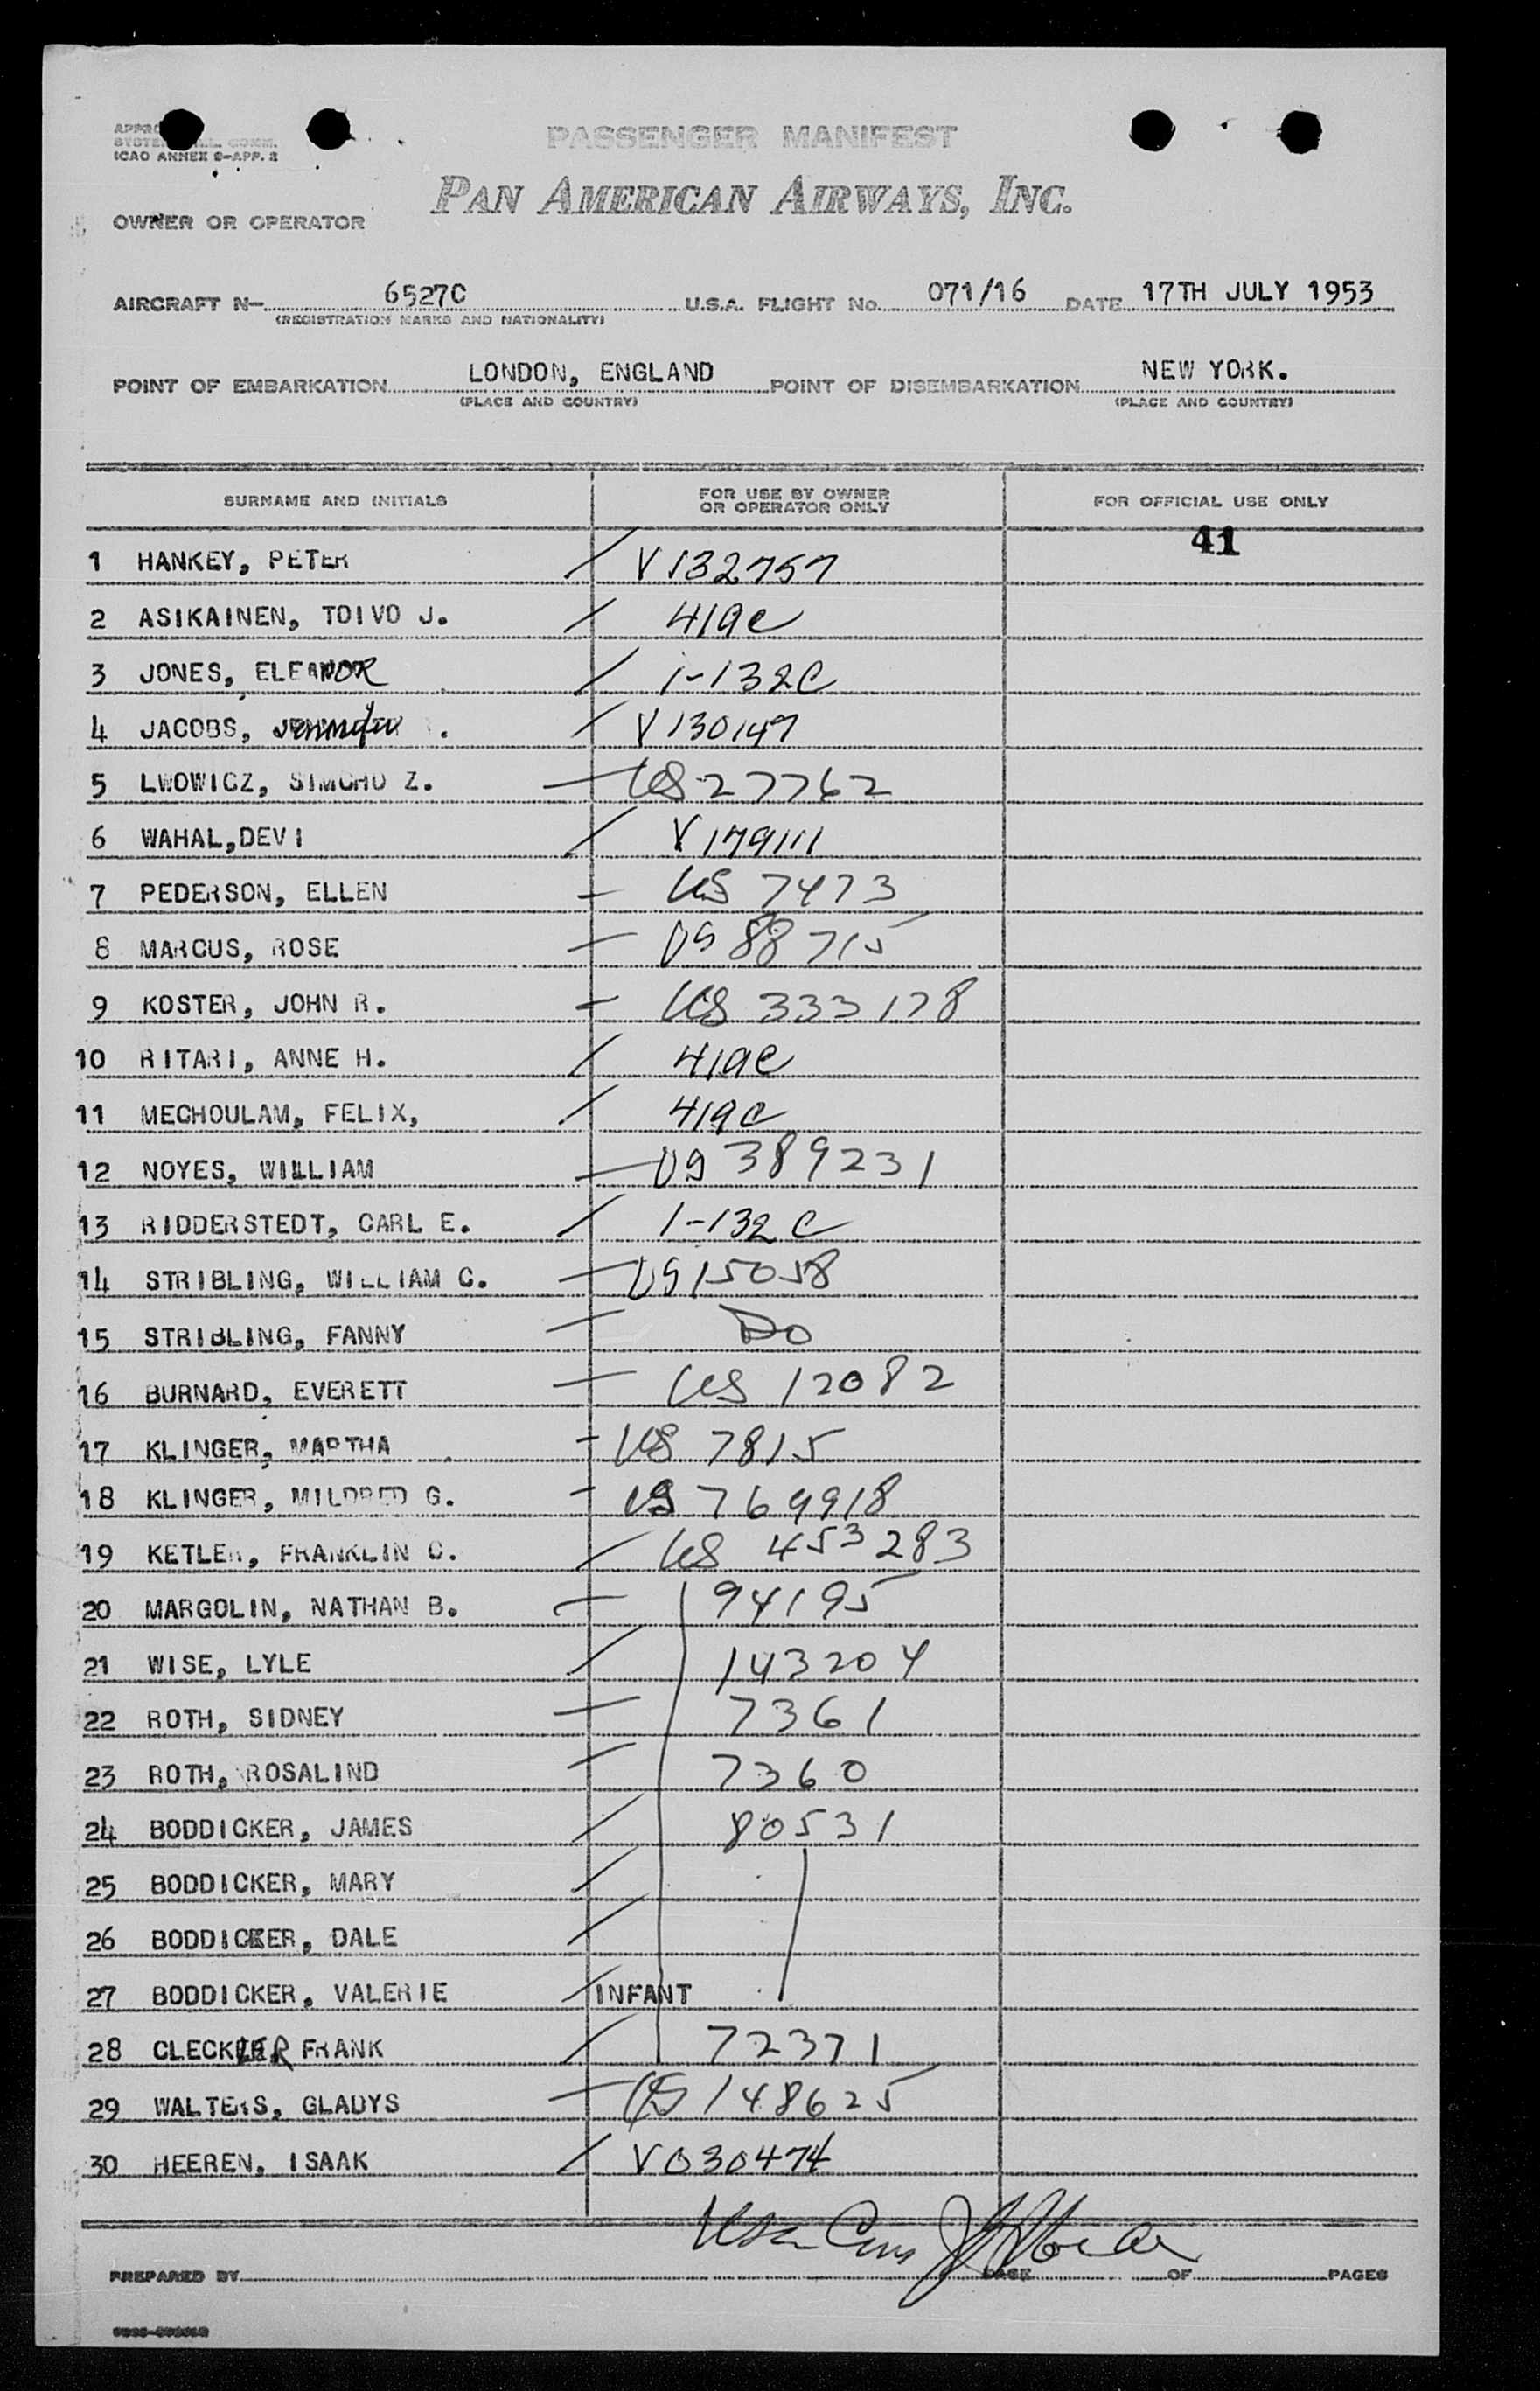 PASSENGER MANIFEST
ICAO ANNEX 9-APP. 2
PAN AMERICAN AIRWAYS, INC.
OWNER OR OPERATOR
AIRCRAFT N- 6527C U.S.A. FLIGHT No. 071/16 DATE 17TH JULY 1953
(REGISTRATION MARKS AND NATIONALITY)
POINT OF EMBARKATION LONDON, ENGLAND POINT OF DISEMBARKATION NEW YORK.
(PLACE AND COUNTRY) (PLACE AND COUNTRY)
SURNAME AND INITIALS FOR USE BY OWNER OR OPERATOR ONLY FOR OFFICIAL USE ONLY
41
1 HANKEY, PETER / V132757
2 ASIKAINEN, TOIVO J. / 419C
3 JONES, ELEANOR / 1-132C
4 JACOBS, Jennifer / V130147
5 LWOWICZ, SIMCHO Z. — US 27762
6 WAHAL,DEVI / V179111
7 PEDERSON, ELLEN — US 7473
8 MARCUS, ROSE — US 88715
9 KOSTER, JOHN R. — US 333178
10 RITARI, ANNE H. / 419C
11 MECHOULAM, FELIX, / 419C
12 NOYES, WILLIAM — US 389231
13 RIDDERSTEDT, CARL E. / 1-132C
14 STRIBLING, WILLIAM C. — US 15058
15 STRIBLING, FANNY — Do
16 BURNARD, EVERETT — US 12082
17 KLINGER, MARTHA — US 7815
18 KLINGER, MILDRED G. — US 769918
19 KETLER, FRANKLIN C. / US 453283
20 MARGOLIN, NATHAN B. — 94195
21 WISE, LYLE / 143204
22 ROTH, SIDNEY — 7361
23 ROTH, ROSALIND — 7360
24 BODDICKER, JAMES / 80531
25 BODDICKER, MARY /
26 BODDICKER, DALE /
27 BODDICKER, VALERIE / INFANT
28 CLECKLER FRANK / 72371
29 WALTERS, GLADYS — US 148625
30 HEEREN, ISAAK / V030474
PREPARED BY PAGE OF PAGES